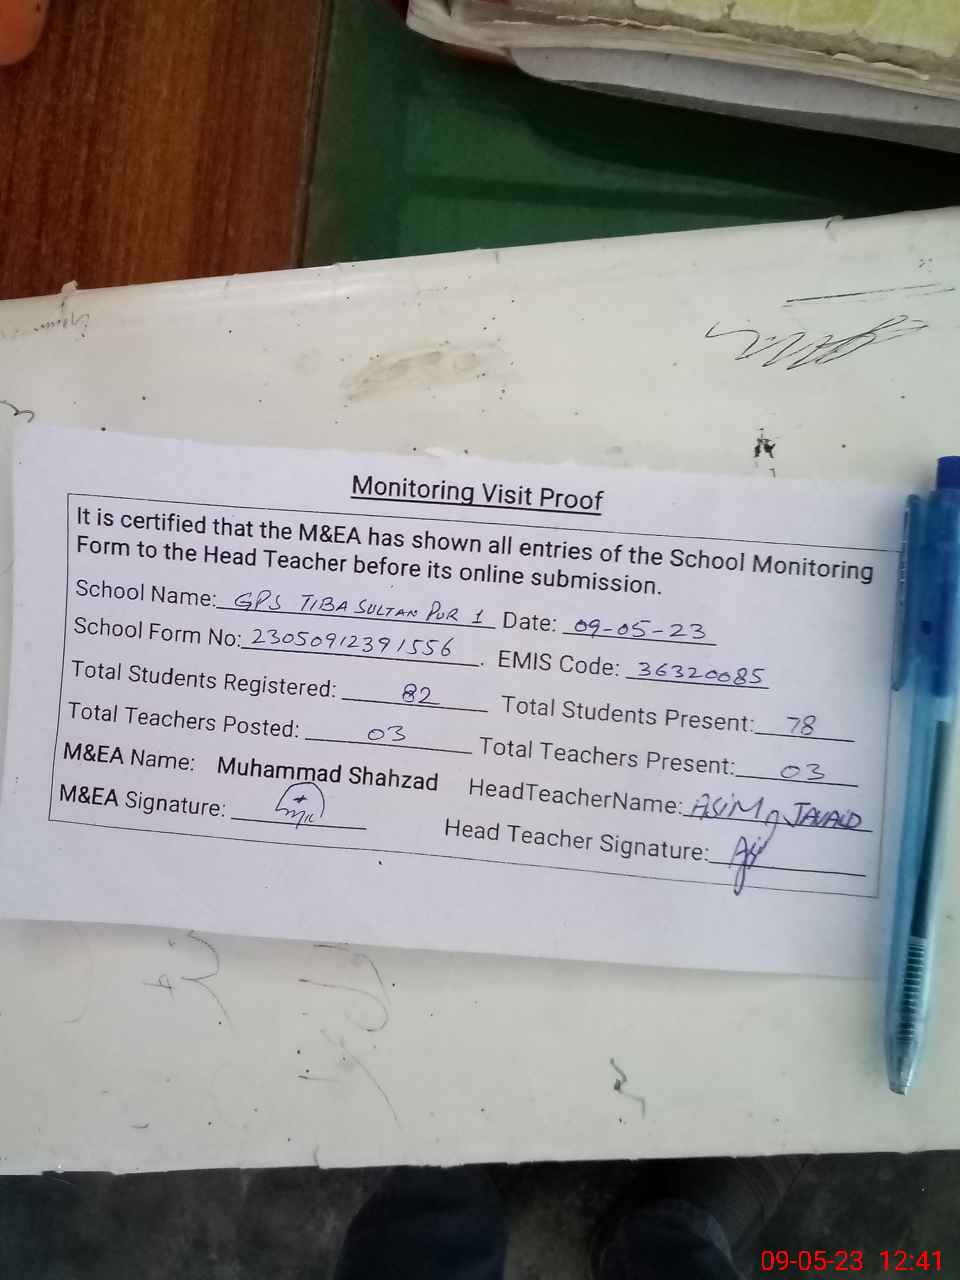 Monitoring Visit Proof
It is certified that the M&EA has shown all entries of the School Monitoring
Form to the Head Teacher before its online submission.
School Name: GPS TIBA SULTAN PUR 1 Date: 09-05-23
School Form No: 23050912391556. EMIS Code: 36320085
Total Students Registered: 82 Total Students Present: 78
Total Teachers Posted: 03 Total Teachers Present: 03
M&EA Name: Muhammad Shahzad HeadTeacherName: ASIM JAVAID
M&EA Signature: Head Teacher Signature:
09-05-23 12:41